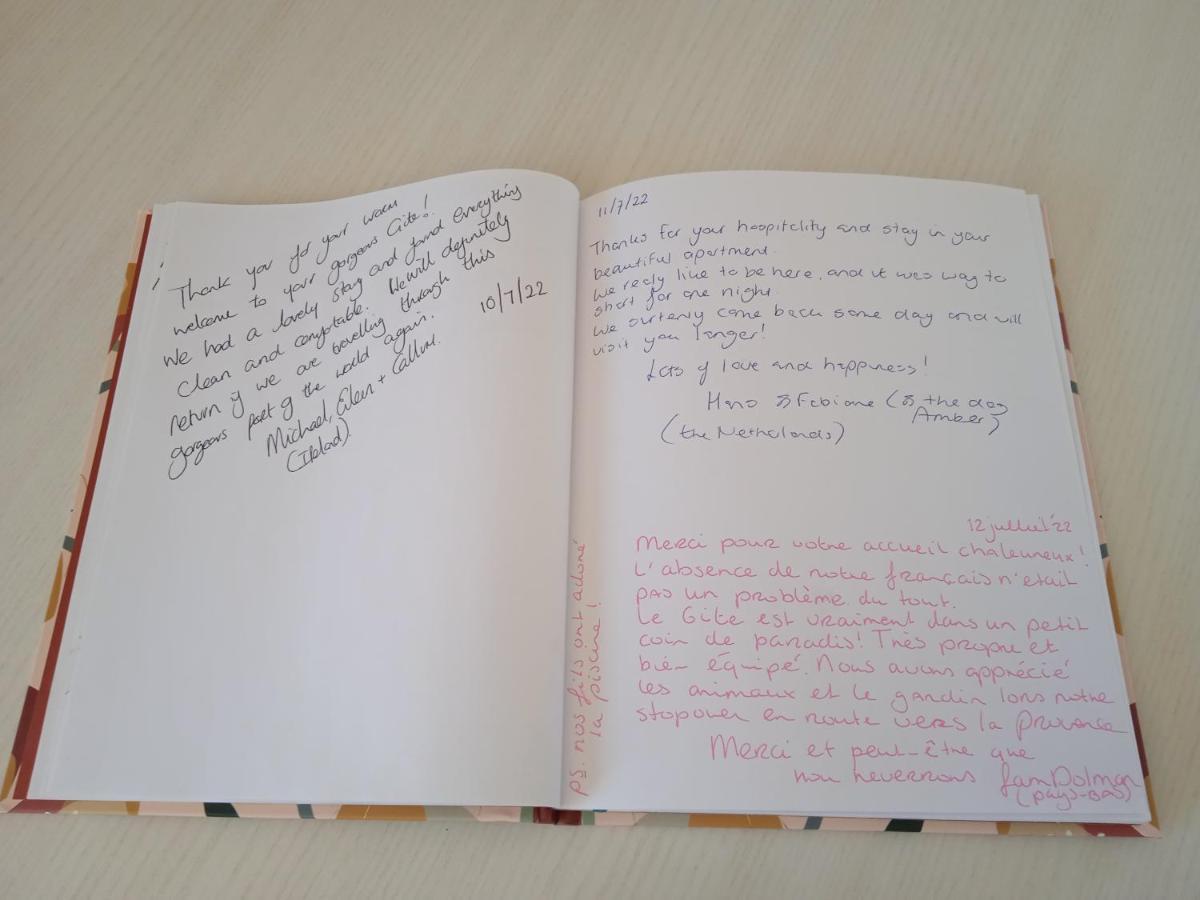 Thank you for your warm
welcome to your gorgeous Gite!
We had a lovely stay and found everything
clean and comfortable. We will definitely
return if we are travelling through this
gorgeous part of the world again.
10/7/22
Michael, Eileen + Callum.
(Ireland)
11/7/22
Thanks for your hospitality and stay in your
beautiful apartment.
We realy like to be here, and it was way to
short for one night.
We come back some day and will
visit you longer!
Lots of love and happiness!
Hans & Fabiane (& the dog
Amber)
(the Netherlands)
12 juillet '22
Merci pour votre accueil chaleureux!
L'absence de notre français n'etait
pas un problème du tout.
Le Gite est vraiment dans un petit
coin de paradis! Très propre et
bien équipé. Nous avons apprécié
les animaux et le gardin lors notre
stopover en route vers la Provence
Merci et peut-être que
nou reverrons fam Dolman
(pays-Bas)
ps. nos fils ont adoré
la piscine!